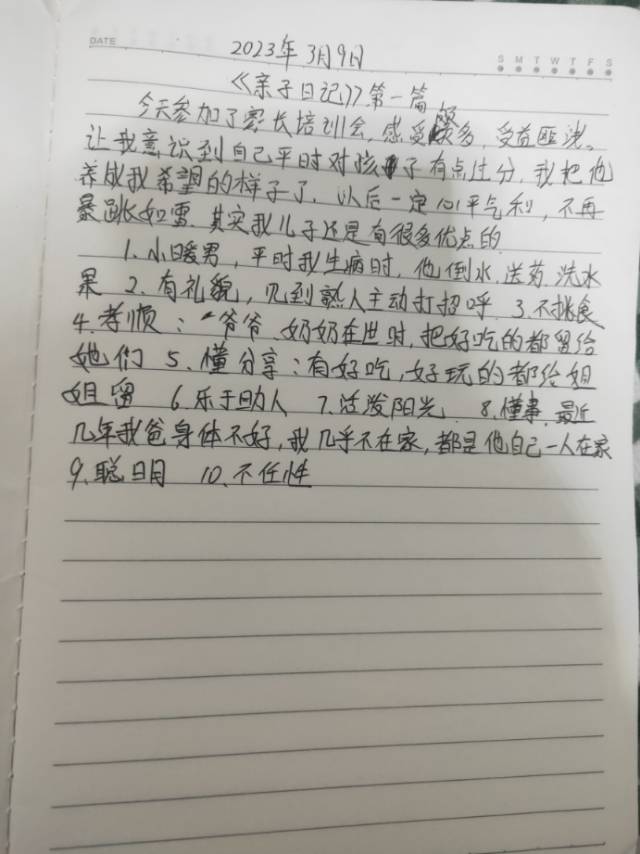 DATE
S M T W T F S
2023年3月9日
《亲子日记》第一篇
今天参加了家长培训会,感受颇多,受益匪浅。
让我意识到自己平时对孩子有点过分,我把他
养成我希望的样子了,以后一定心平气和,不再
暴跳如雷,其实我儿子还是有很多优点的
1、小暖男,平时我生病时,他倒水,送药,洗水
果 2、有礼貌,见到熟人主动打招呼 3、不挑食
4、孝顺:爷爷、奶奶在世时,把好吃的都留给
她们 5、懂分享:有好吃,好玩的都给姐
姐留 6、乐于助人 7、活泼阳光 8、懂事,最近
几年我爸身体不好,我几乎不在家,都是他自己一人在家
9、聪明 10、不任性